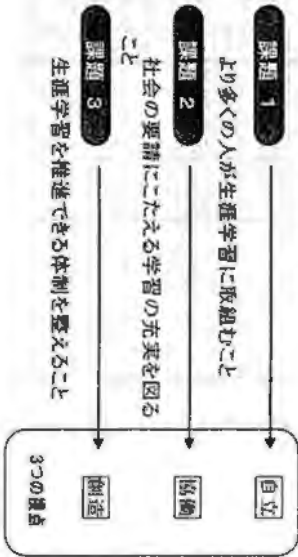 課題 1
より多くの人が生涯学習に取組むこと
自立
課題 2
社会の要請にこたえる学習の充実を図る
こと
協働
課題 3
生涯学習を推進できる体制を整えること
創造
3つの視点